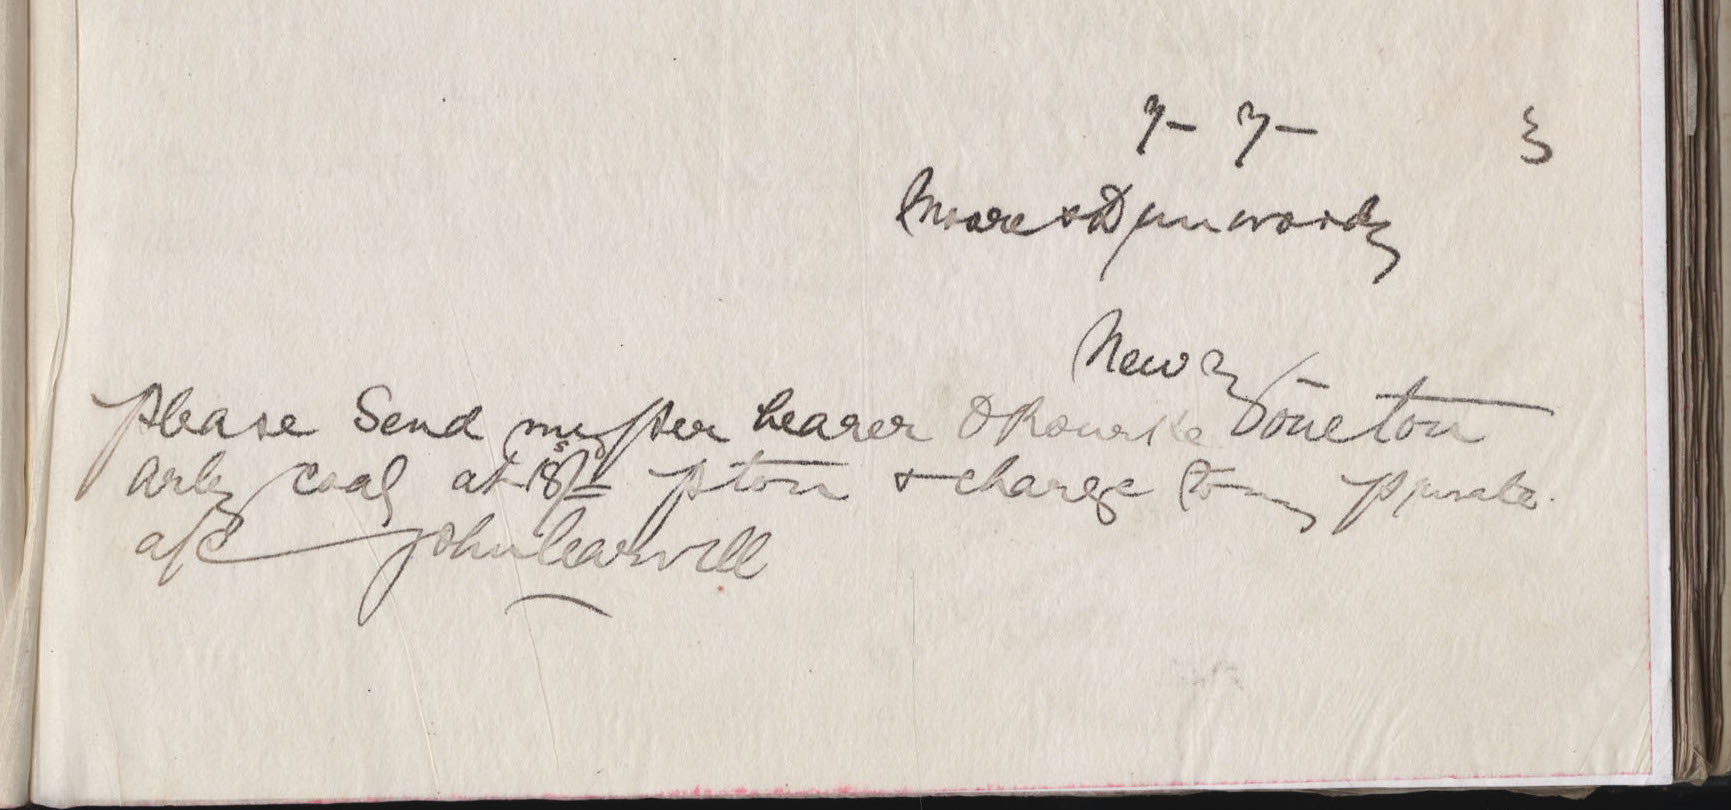 7- 7- 3
Moore & Dunwoody
Newry
please send me per bearer O Rourke one ton
Arly coal at 18s/= p ton & charge to my private
a/c John Carvill